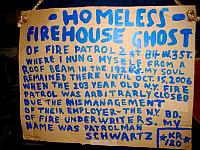 -HOMELESS-
FIREHOUSE GHOST
OF FIRE PATROL 2 at 84 W.3 ST.
WHERE I HUNG MYSELF FROM A
ROOF BEAM IN THE 1920'S. MY SOUL
REMAINED THERE UNTIL OCT. 15, 2006
WHEN THE 203 YEAR OLD N.Y. FIRE
PATROL WAS ARBITRARLY CLOSED
DUE THE MISMANAGEMENT
OF THEIR EMPLOYER-THE N.Y. BD.
OF FIRE UNDERWRITERS. MY
NAME WAS PATROLMAN
SCHWARTZ
*KR*
/20